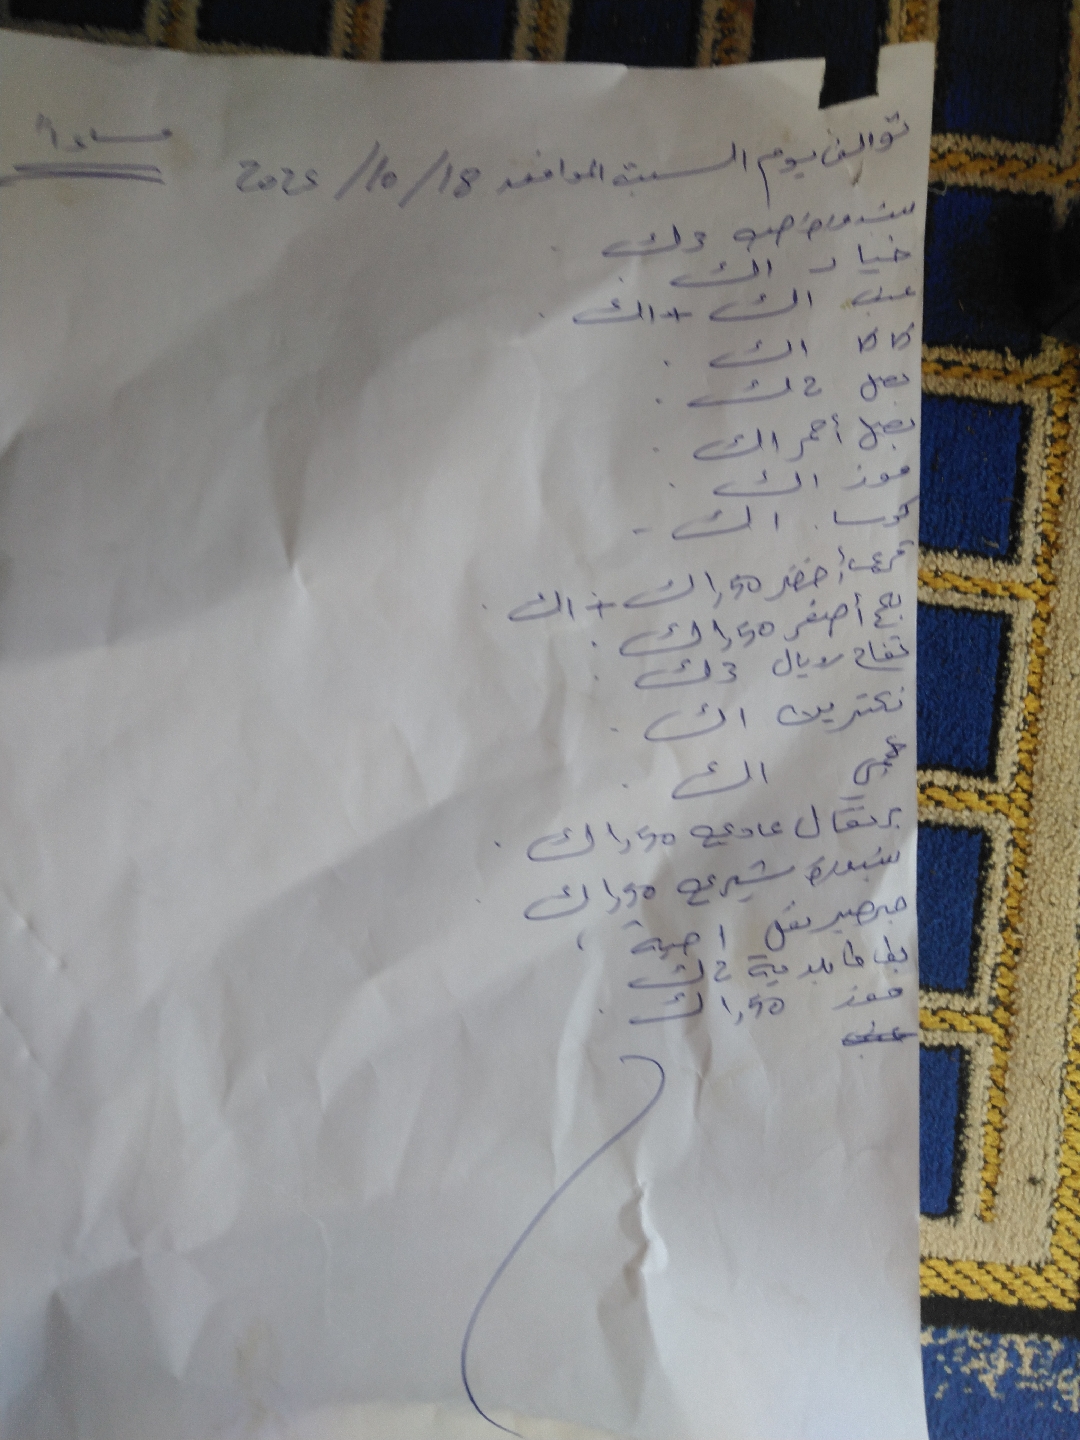 توالف يوم السبت الموافق 18/10/2025 مساءا
حبه 3ك
خيار 1ك
عنب 1ك + 1ك
كاكا 1ك
بصل 2ك
بصل أحمر 1ك
موز 1ك
كوسا 1ك
أخضر 1,50ك + 1ك
أصفر 1,50ك
تفاح رويال 3ك
نكترين 1ك
1ك
برتقال عادي 1,50ك
شيري 1,50ك
1 حبة
بطاطا بلدية 2ك
موز 1,50ك
عنب